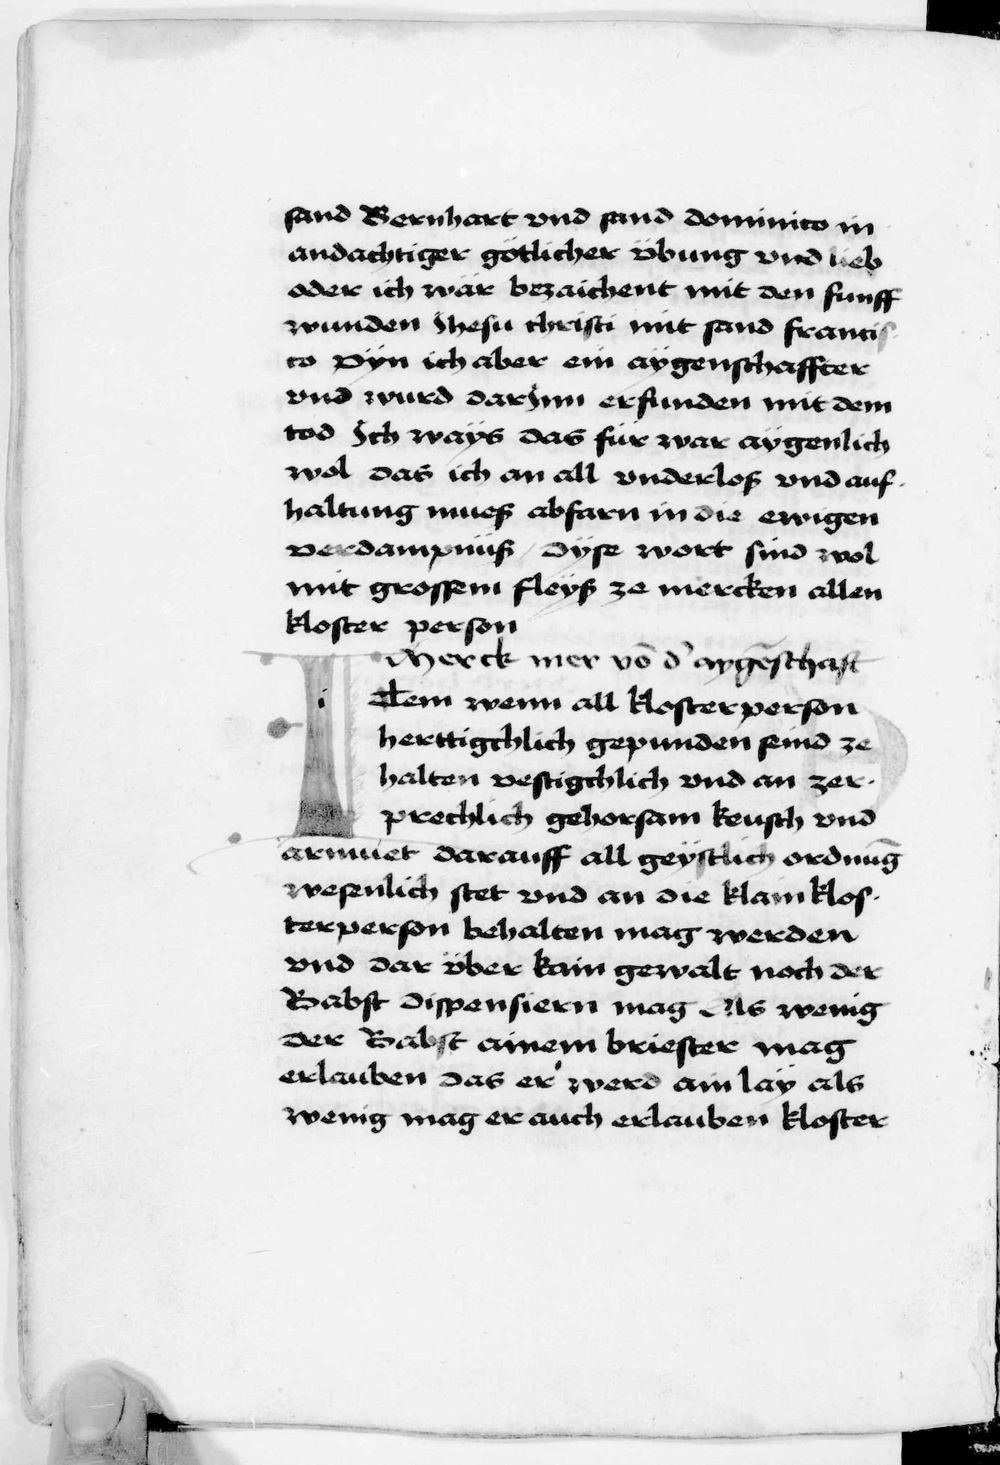 sand Bernhart vnd sand dominico in
andachtiger götlicher übung vnd lieb
oder ich wär bezaichent mit den funff
wunden Jhesu christi mit sand francis-
co Pÿn ich aber ein aÿgenschaffter
vnd wurd darJnn erfunden mit dem
tod Jch wäÿs das für war aÿgenlich
wol das ich an all vnderloß vnd auf-
haltung mueß abfarn in die ewigen
verdampnüß / Dÿse wort sind wol
mit grossem fleÿß ze mercken allen
kloster person
Merck mer võ d' aygēschaft
ITem wenn all klosterperson
herttigchlich gepunden seind ze
halten vestigchlich vnd an zer-
prechlich gehorsam keusch vnd
armuet darauff all geÿstlich ordnūg
wesenlich stet vnd an die klain klos-
terperson behalten mag werden
vnd dar über kain gewalt noch der
Babst dispensiern mag Als wenig
der Babst ainem briester mag
erlauben das er werd ain läÿ als
wenig mag er auch erlauben kloster